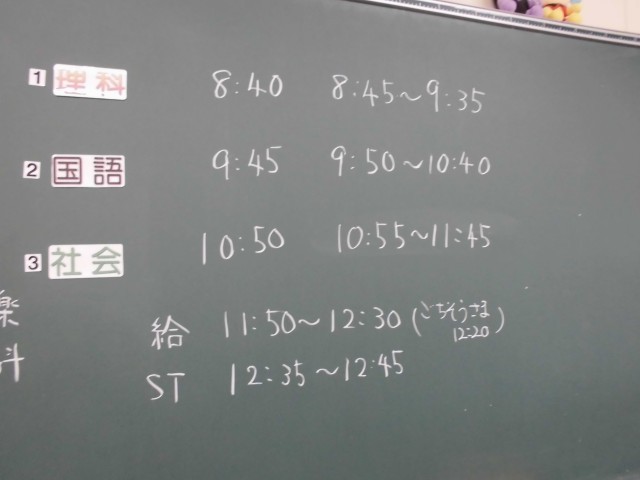 1 理科 8:40 8:45～9:35
2 国語 9:45 9:50～10:40
3 社会 10:50 10:55～11:45
楽
科
給 11:50～12:30 (ごちそうさま 12:20)
ST 12:35～12:45